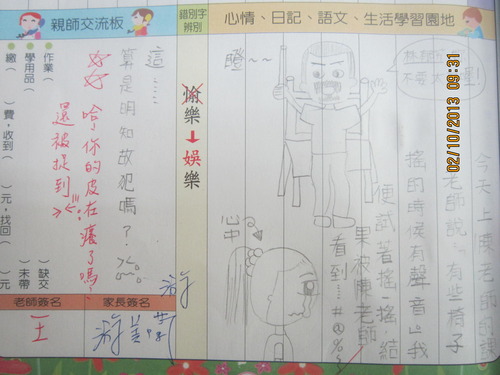 心情、日記、語文、生活學習園地
02/10/2013 09:31
今天上陳老師的課
老師說:有些椅子
搖的時候有聲音。我
便試著搖一搖,結
果被陳老師
看到…#@%$
瞪~~
心中
錯別字辨別
愉樂
娛樂
親師交流板
這……
算是明知故犯嗎?
好好
哈!你的皮在癢了嗎?
還被捉到
作業(
)缺交
學用品(
)未帶
繳(
)費,收到(
)元,找回(
)元
老師簽名
家長簽名
王
游